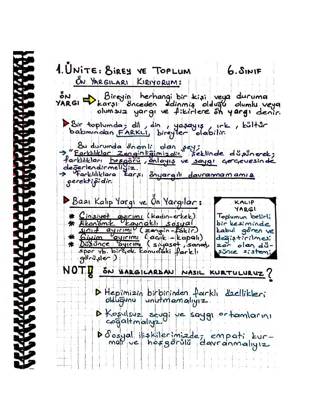 1. ÜNİTE: BİREY VE TOPLUM 6. SINIF
ÖN YARGILARI KIRIYORUM:
ÖN YARGI
Bireyin herhangi bir kişi veya duruma
karşı önceden edinmiş olduğu olumlu veya
olumsuz yargı ve fikirlere ön yargı denir.
Bir toplumda; dil, din, yaşayış, ırk, kültür
bakımından FARKLI, bireyler olabilir.
Bu durumda önemli olan şey;
"Farklılıklar Zenginliğimizdir" şeklinde düşünerek;
farklılıkları hoşgörü, anlayış ve saygı çerçevesinde
değerlendirmeliyiz.
Farklılıklara karşı önyargılı davranmamamız
gerektiğidir.
Bazı Kalıp Yargı ve Ön Yargılar:
Cinsiyet ayırımı (kadın-erkek)
Ekonomik kaynaklı sosyal
sınıf ayırımı (zengin-fakir)
Giyim ayırımı (açık-kapalı)
Düşünce ayırımı (siyaset, sanat,
spor vb. birçok konudaki farklı
görüşler)
KALIP
YARGI
Toplumun belirli
bir kesiminde
kabul gören ve
değiştirilmesi
zor olan dü
şünce sistemi
NOT! ÖN YARGILARDAN NASIL KURTULURUZ?
Hepimizin birbirinden farklı özellikleri
olduğunu unutmamalıyız
Koşulsuz sevgi ve saygı ortamlarını
çoğaltmalıyız.
Sosyal ilişkilerimizde; empati kur-
malı ve hoşgörülü davranmalıyız